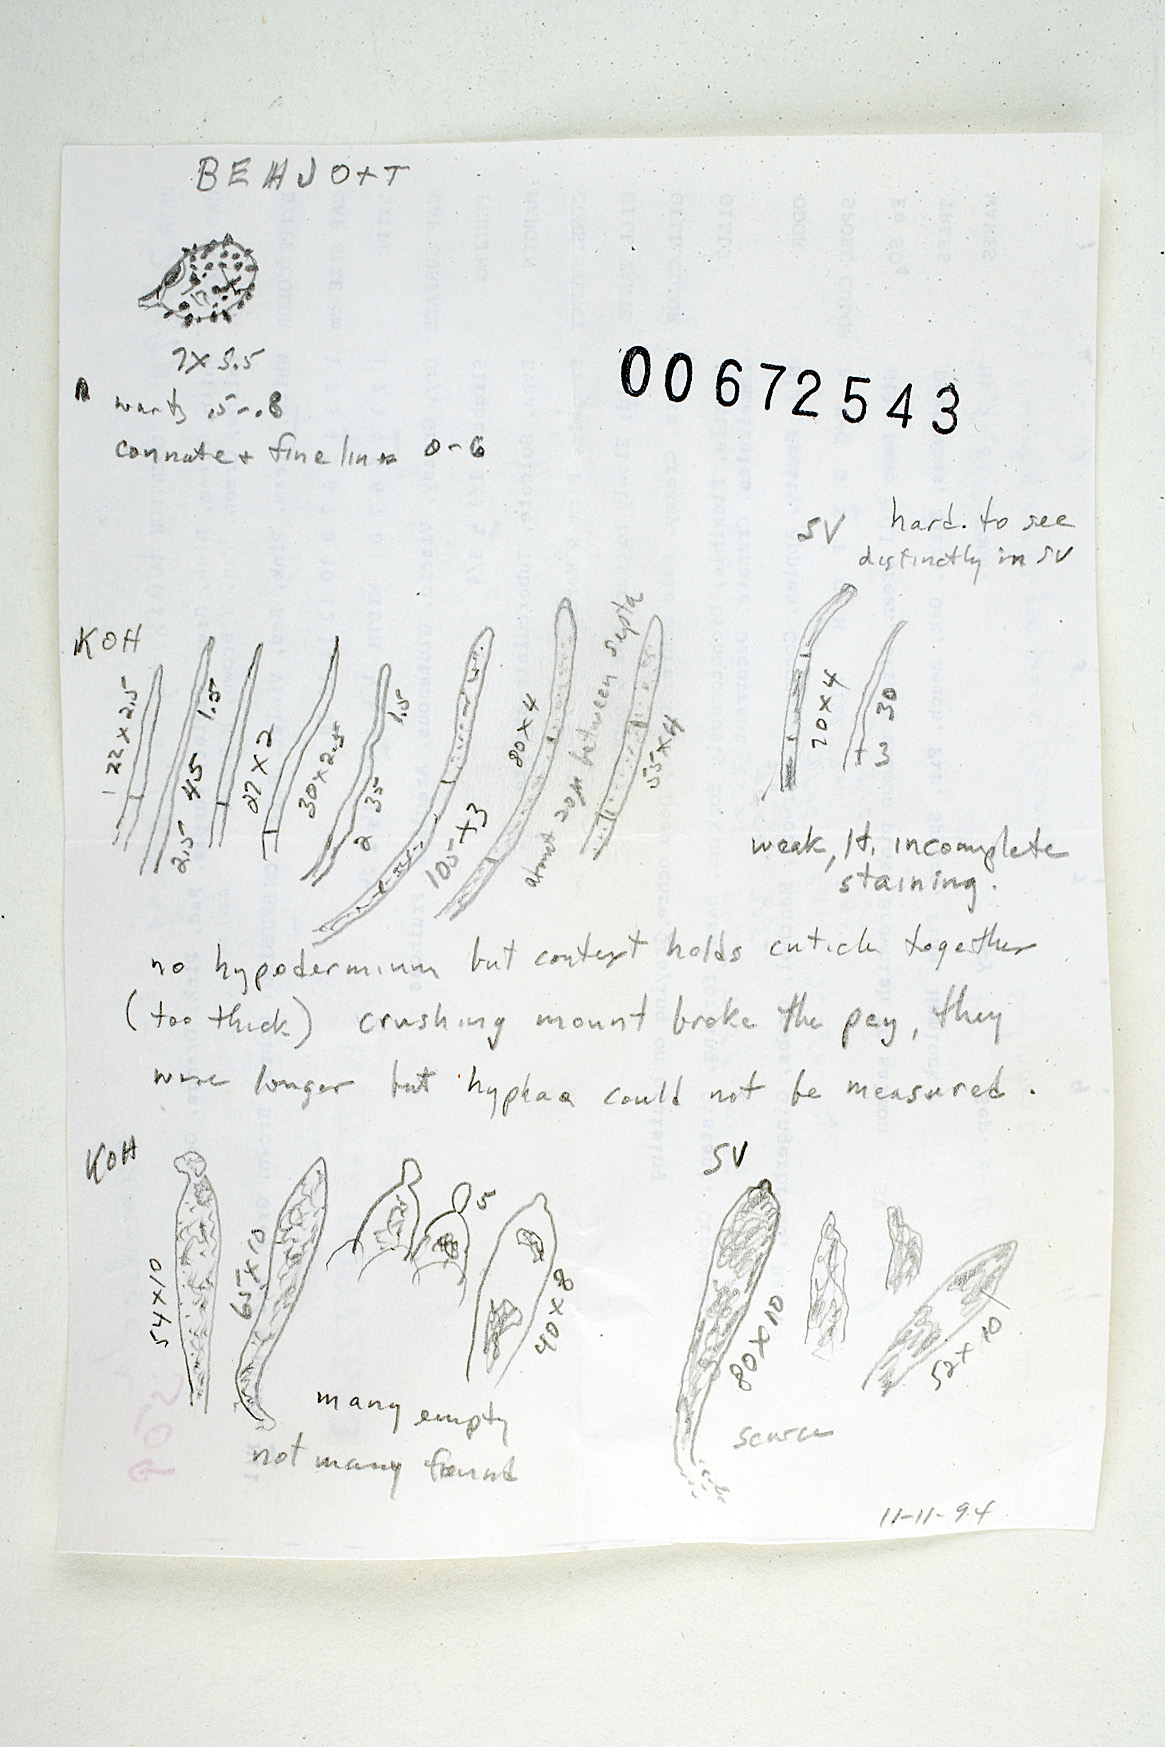 BEHJO+T
7 x 5.5
warts .5-.8
connate + fine lines 0-6
00672543
SV hard. to see
distinctly in SV
KOH
122 x 2.5
2.5 45 1.5
27 x 2
30 x 2.5
2 35 1.5
105 x 3
80 x 4
about 20µ between septa
55 x 4
70 x 4
30
+ 3
weak, lt. incomplete
staining.
no hypodermium but context holds cuticle together
(too thick) crushing mount broke the pcy, they
were longer but hyphae could not be measured.
KOH
SV
54 x 10
65 x 10
5
40 x 8
80 x 10
52 x 10
many empty
not many found
scarce
11-11-94